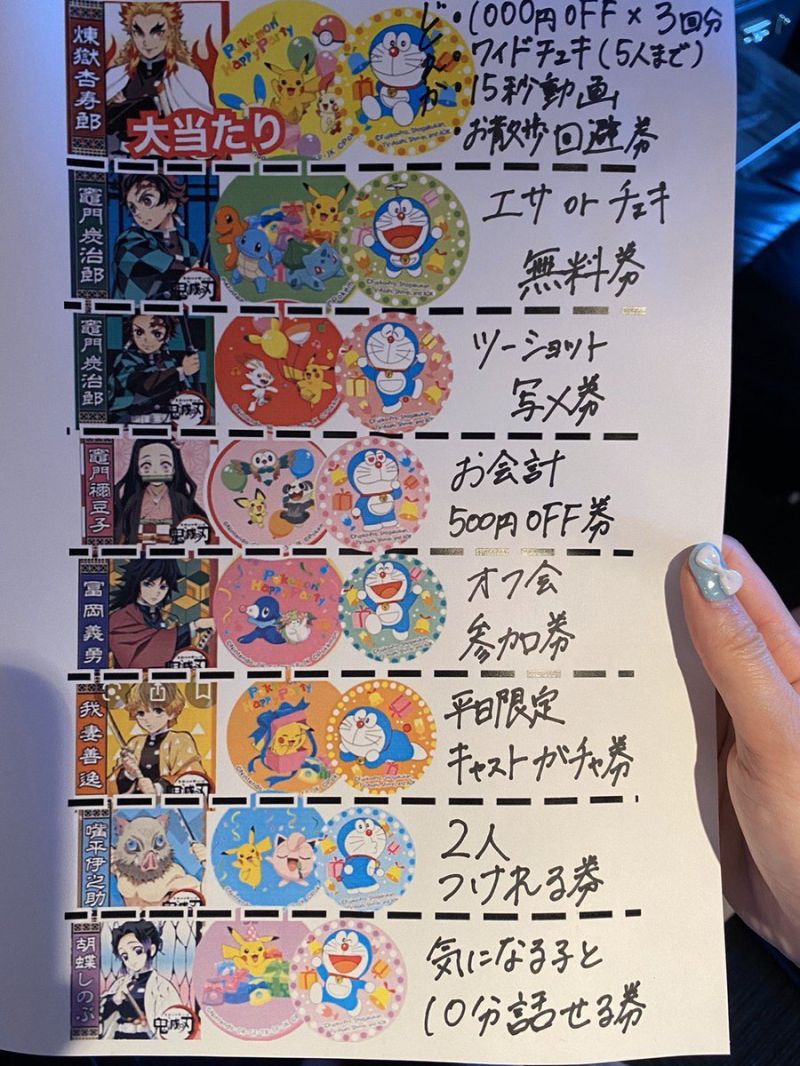 煉獄杏寿郎
大当たり
Pokémon
Happy Party
どれか
・1000円OFF×3回分
・ワイドチェキ(5人まで)
・15秒動画
・お散歩回避券
竈門炭治郎
鬼滅刃
エサ or チェキ
無料券
竈門炭治郎
鬼滅刃
ツーショット
写メ券
竈門禰豆子
鬼滅刃
お会計
500円OFF券
冨岡義勇
鬼滅刃
Pokémon
Happy Party
オフ会
参加券
我妻善逸
鬼滅刃
Pokémon
Happy Party
平日限定
キャストガチャ券
嘴平伊之助
2人
つけれる券
胡蝶しのぶ
鬼滅刃
気になる子と
10分話せる券